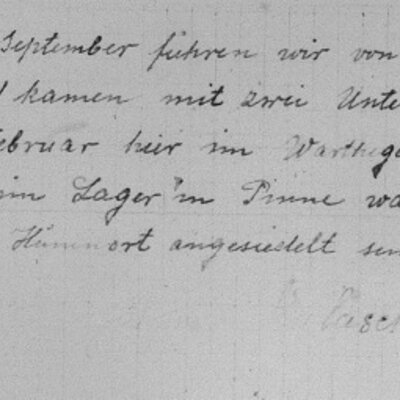 September fuhren wir von
kamen mit zwei Unte
ebruar hier im Warthega
in Lager in Pinne wa
ort angesiedelt